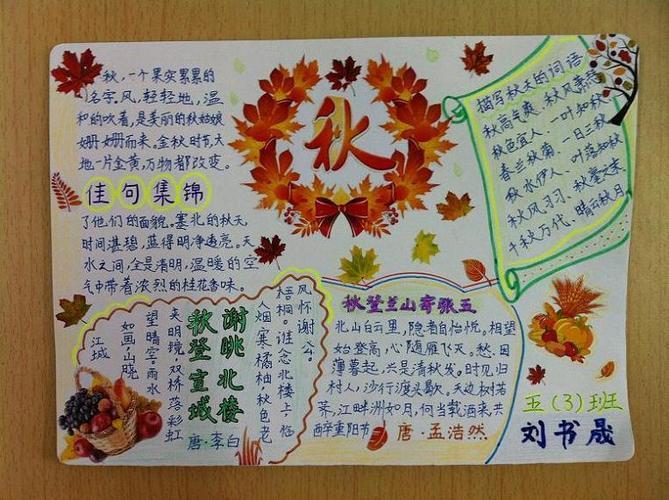 秋,一个果实累累的
名字,风,轻轻地,温
和的吹着,是美丽的秋姑娘
姗姗而来,金秋时节,大
地一片金黄,万物都改变。
佳句集锦
了他们的面貌。塞北的秋天,
时间湛碧,蓝得明净透亮。天
水之间,全是清明,温暖的空
气中带着浓烈的桂花香味。
秋
描写秋天的词语
秋高气爽 秋风萧瑟
秋色宜人 一叶知秋
春兰秋菊 一日三秋
秋水伊人 一叶落知秋
秋风习习 秋毫
千秋万代 晴云秋月
谢眺北楼
秋登宣城
唐·李白
江城
如画,山晓
望晴空。雨水
夹明镜,双桥落彩虹
人烟寒橘柚,秋色老
梧桐。谁念北楼上,临
风怀谢公。
秋登兰山寄张五
北山白云里,隐者自怡悦。相望
始登高,心随雁飞灭。愁因
薄暮起,兴是清秋发。时见归
村人,沙行渡头歇。天边树若
荠,江畔洲如月。何当载酒来,共
醉重阳节
唐·孟浩然
五(3)班
刘书晟